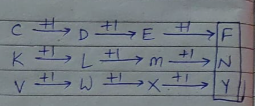 C +1→ D +1→ E +1→ F
K +1→ L +1→ m +1→ N
V +1→ W +1→ X +1→ Y